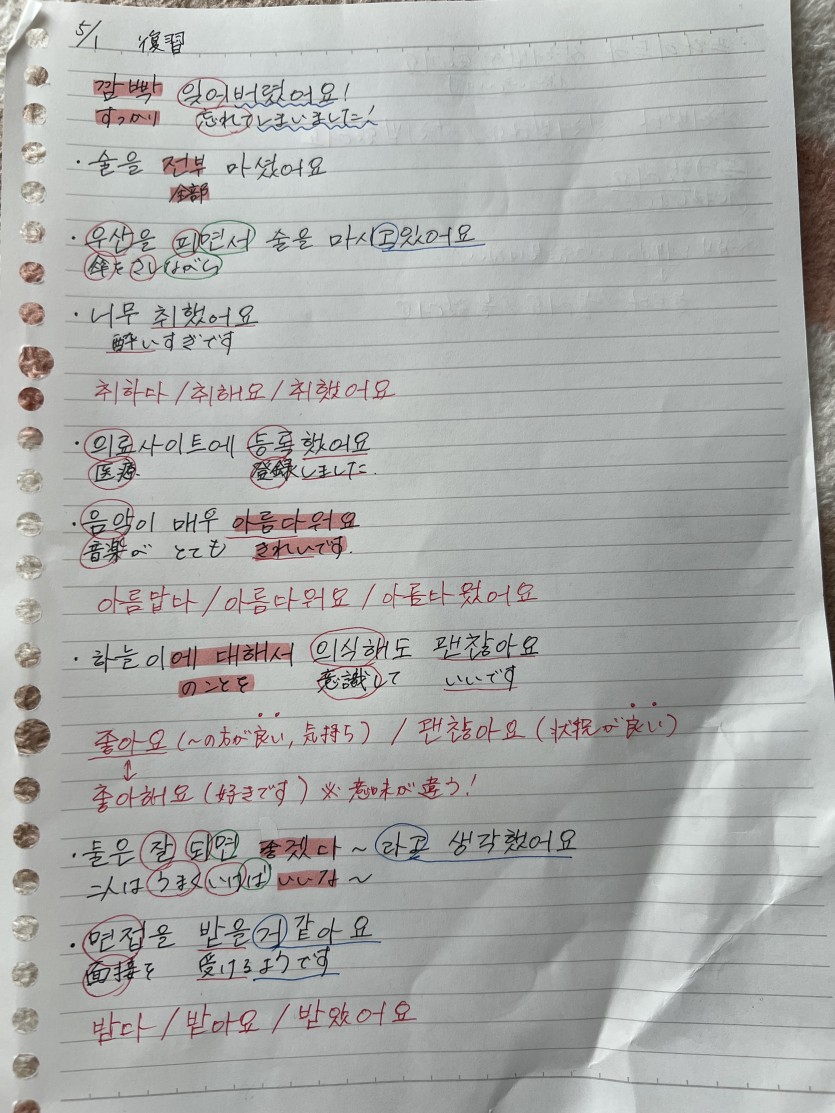 5/1 復習
깜빡 잊어버렸어요!
すっかり 忘れてしまいました!
・술을 전부 마셨어요
全部
・우산을 피면서 술을 마시고있어요
傘を さしながら
・너무 취했어요
酔いすぎです
취하다 / 취해요 / 취했어요
・의료사이트에 등록했어요
医療 登録しました.
・음악이 매우 아름다워요
音楽が とても きれいです.
아름답다 / 아름다워요 / 아름다웠어요
・하늘이에 대해서 의식해도 괜찮아요
のことを 意識して いいです
좋아요 (~の方が良い, 気持ち) / 괜찮아요 (状況が良い)
↕
좋아해요 (好きです) ※ 意味が違う!
・둘은 잘 되면 좋겠다~라고 생각했어요
二人は うまくいけば いいな~
・면접을 받을거같아요
面接を 受けるようです
받다 / 받아요 / 받았어요